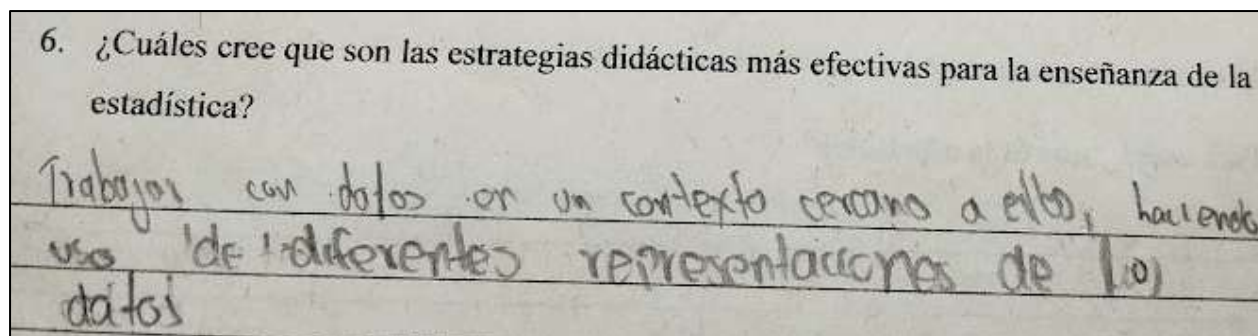 6. ¿Cuáles cree que son las estrategias didácticas más efectivas para la enseñanza de la
estadística?
Trabajar con datos en un contexto cercano a ellos, haciendo
uso de diferentes representaciones de los
datos